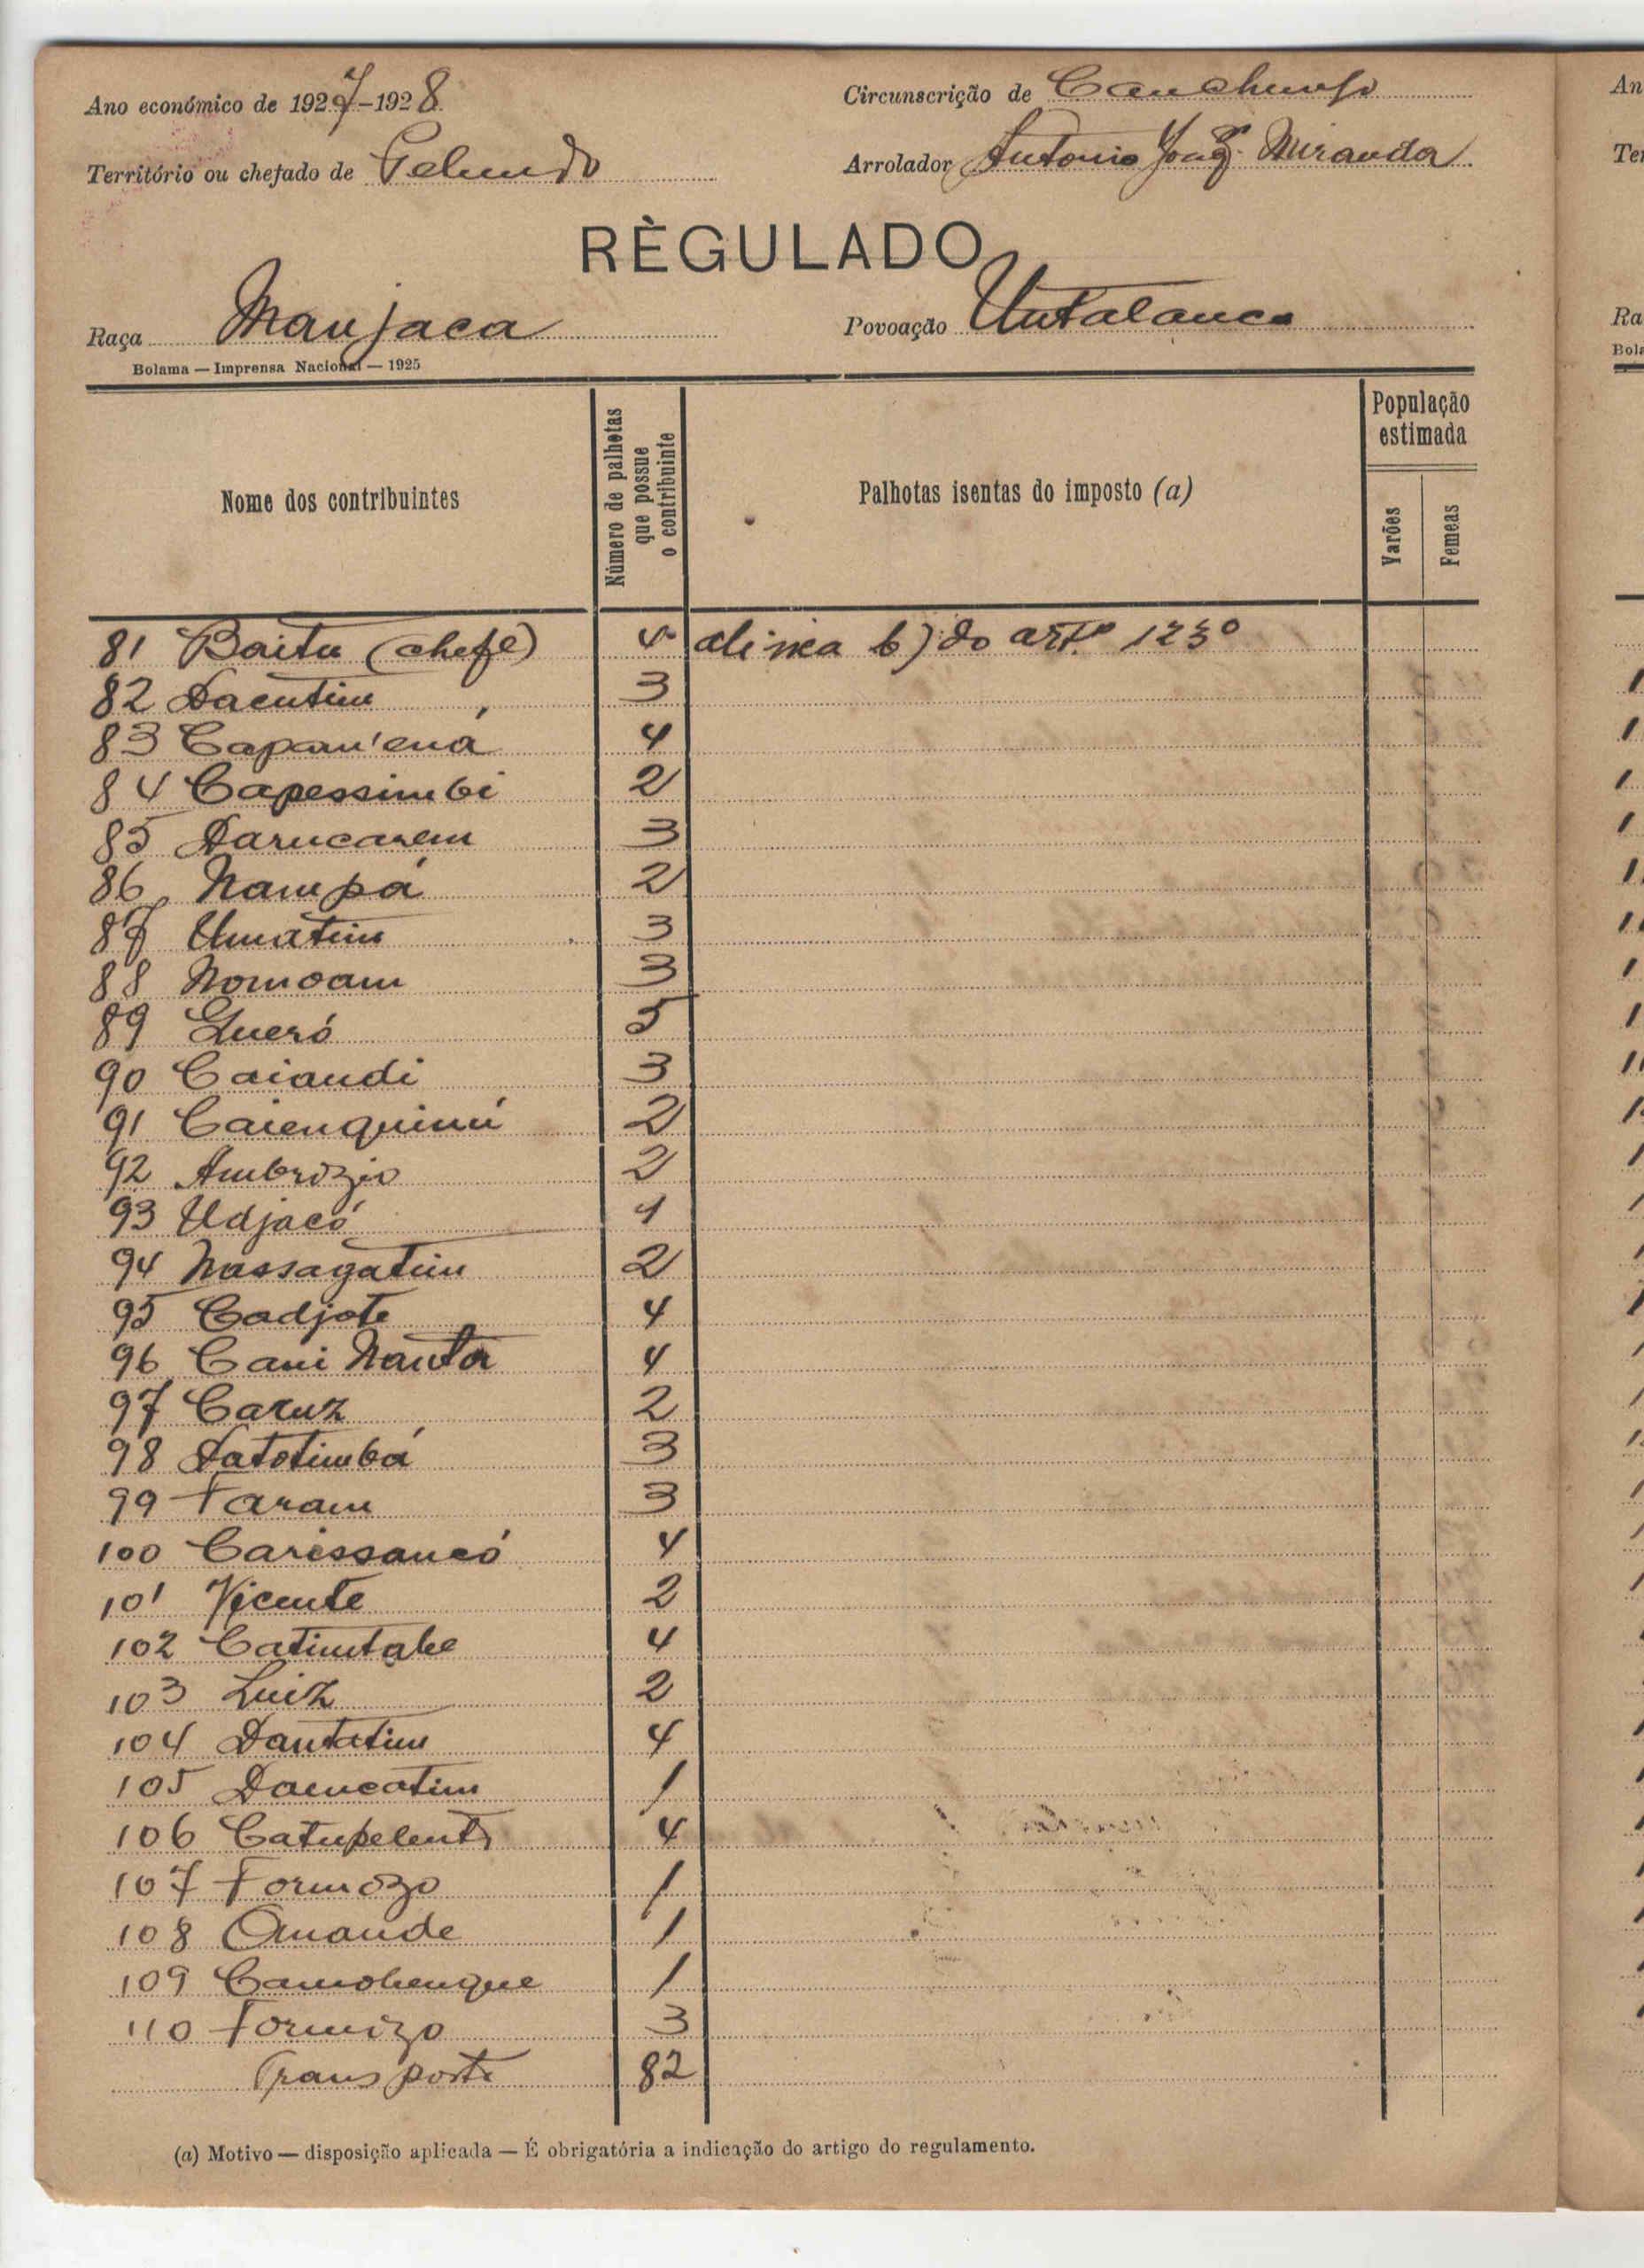 Ano económico de 1927-1928
Circunscrição de Canchungo
Território ou chefado de Pelundo
Arrolador Antonio Joaqm Miranda
RÈGULADO
Raça Manjaca
Povoação Untalanca
Bolama — Imprensa Nacional — 1925
Nome dos contribuintes
Número de palhotas que possue o contribuinte
Palhotas isentas do imposto (a)
População estimada
Varões
Femeas
81 Baitu (chefe) 4 alinea b) do artº 123º
82 Dacutim 3
83 Capam'ená 4
84 Capessimbi 2
85 Darucarem 3
86 Nampá 2
87 Umatim 3
88 Nomoam 3
89 Queró 5
90 Caiandi 3
91 Caienquinú 2
92 Ambrozio 2
93 Udjacó 1
94 Nassagatim 2
95 Cadjote 4
96 Cani Nanta 4
97 Caruz 2
98 Datotimbá 3
99 Faram 3
100 Carissancó 4
101 Vicente 2
102 Catimtabe 4
103 Luiz 2
104 Dantatim 4
105 Damcatim 1
106 Catupelento 4
107 Formozo 1
108 Omande 1
109 Camohenque 1
110 Formozo 3
Transporte 82
(a) Motivo — disposição aplicada — É obrigatória a indicação do artigo do regulamento.
An
Te
Ra
Bola